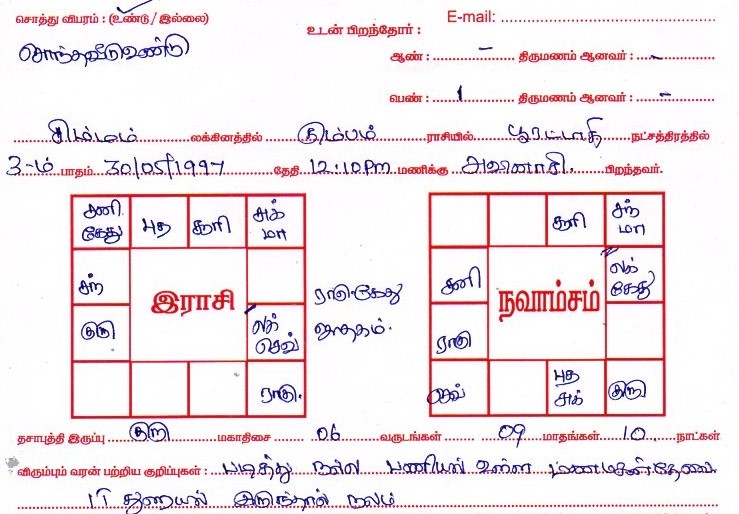 சொத்து விபரம் : (உண்டு / இல்லை)
E-mail:
உடன் பிறந்தோர் :
சொந்தவீடு உண்டு
ஆண் : - திருமணம் ஆனவர் : -
பெண் : 1 திருமணம் ஆனவர் : -
சிம்மம் லக்கினத்தில் கும்பம் ராசியில் பூரட்டாதி நட்சத்திரத்தில்
3-ம் பாதம் 30/05/1997 தேதி 12:10PM மணிக்கு அவினாசி. பிறந்தவர்.
சனி கேது
புத
சூரி
சுக் மா
சந்
குரு
இராசி
லக் செவ்
ராகு.
ராகு கேது
ஜாதகம்.
சூரி
சந் மா
சனி
லக் கேது
ராகு
நவாம்சம்
செவ்
புத சுக்
குரு
தசாபுத்தி இருப்பு குரு மகாதிசை 06 வருடங்கள் 09 மாதங்கள் 10 நாட்கள்
விரும்பும் வரன் பற்றிய குறிப்புகள் : படித்து நல்ல பணியில் உள்ள மணமகன் தேவை
IT துறையில் இருந்தால் நலம்